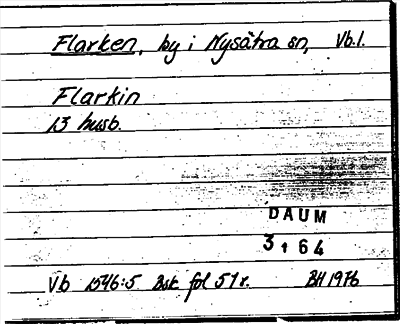 Flarken, by i Nysätra sn, Vb.l.
Flarkin
13 husb.
DAUM
3 1 64
Vb 1546:5 Bsk fol 51r. BH 1976